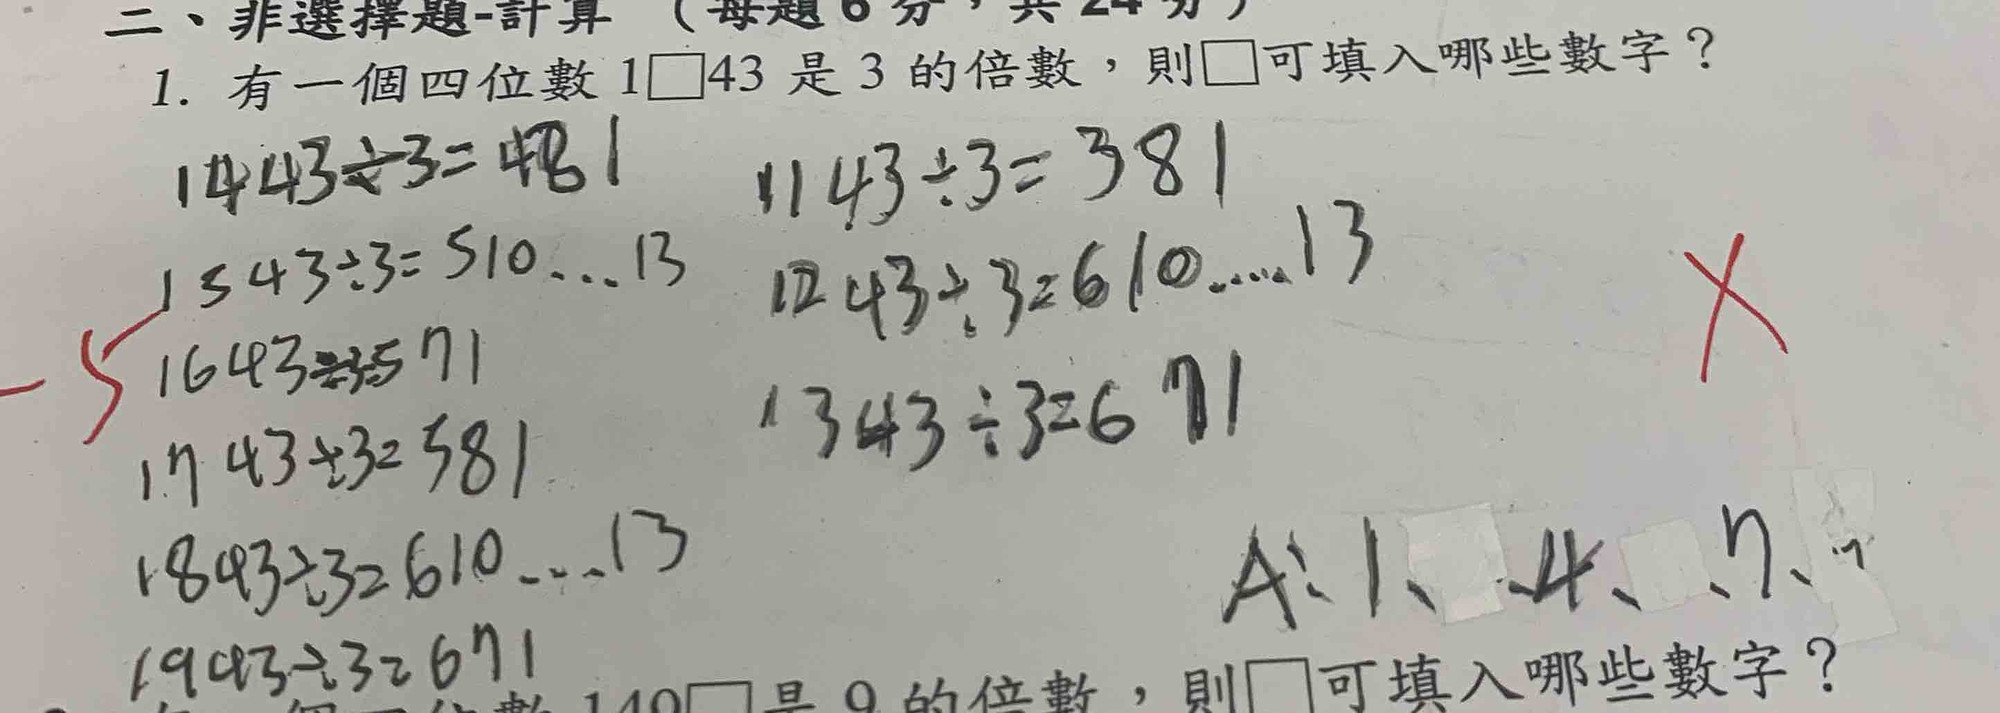 二、非選擇題-計算 (每題 6 分,共 24 分)
1. 有一個四位數 1□43 是 3 的倍數,則□可填入哪些數字?
1443÷3=481
1543÷3=510...13
1643÷3=571
1743÷3=581
1843÷3=610....13
1943÷3=671
1143÷3=381
1243÷3=610.....13
1343÷3=671
-5
X
A:1、4、7、
數 140□是 9 的倍數,則□可填入哪些數字?